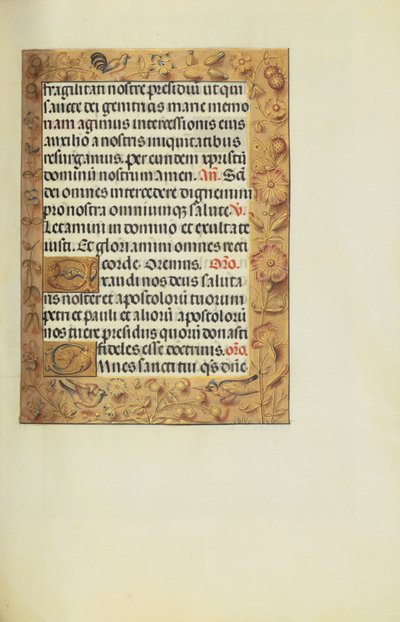 fragilitati nostre presidiū ut qui
sancte dei genitricis marie memo
riam agimus intercessionis eius
auxilio a nostris iniquitatibus
resurgamus. per eundem xpristū
dominū nostrum amen. An̄. Sc̄i
dei omnes intercedere dignemini
pro nostra omniumq3 salute. V.
Letamini in domino et exultate
iusti. Et gloriamini omnes recti
corde. Oremus. Oro.
Exaudi nos deus saluta
ris noster et apostolorū tuorum
petri et pauli et aliorū apostolorū
nos tuere presidiis quorū donasti
fideles esse doctrinis. oro.
Omnes sancti tui q̄s dn̄e